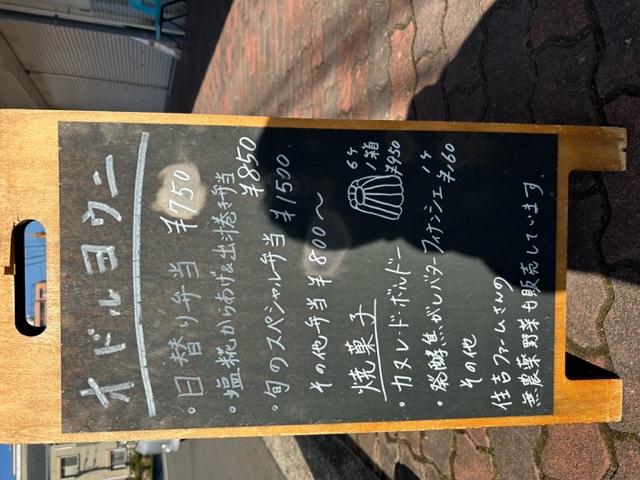 オドルヨウニ
・日替り弁当 ¥750
・塩糀からあげ&出汁巻き弁当
¥850
・旬のスペシャル弁当 ¥1500.
その他弁当 ¥800〜
焼菓子
6ケ
1箱
・カヌレ・ド・ボルドー ¥950
・発酵焦がしバターフィナンシェ 1ケ
¥160
その他
住吉ファームさんの
無農薬野菜も販売しています.